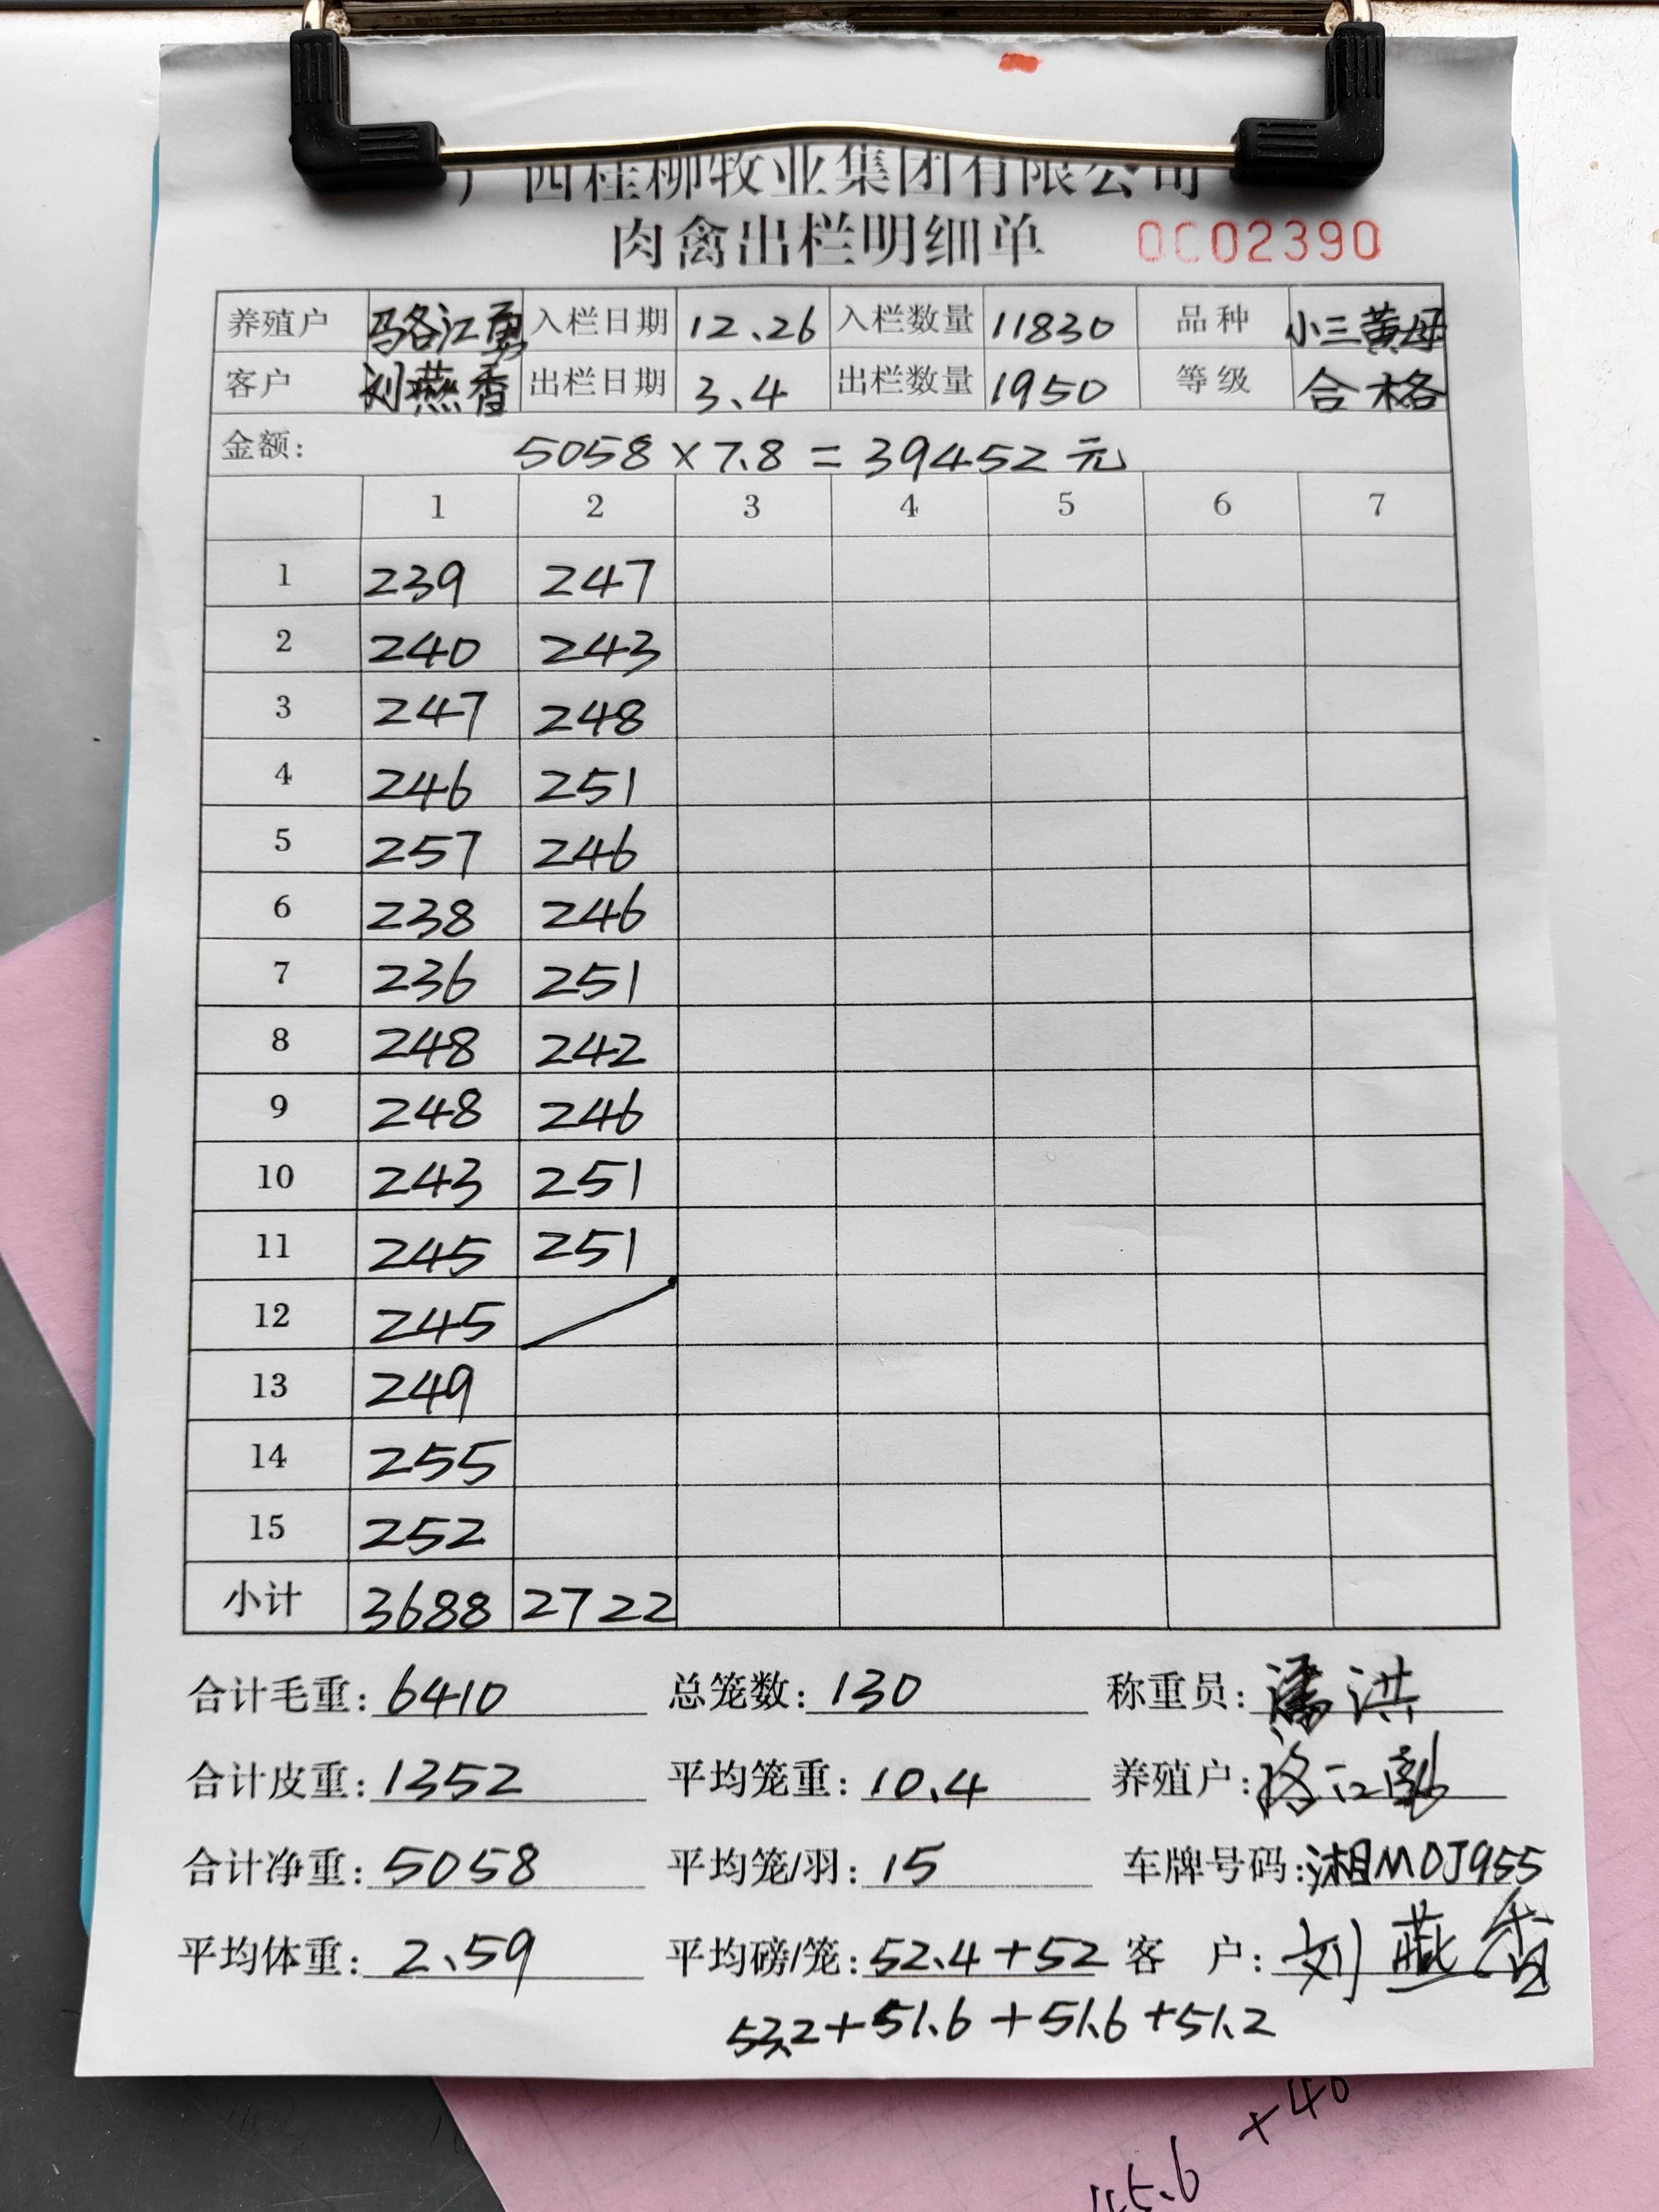 广西桂柳牧业集团有限公司
肉禽出栏明细单 0C02390
养殖户 马各江勇 入栏日期 12.26 入栏数量 11830 品种 小三黄母
客户 刘燕香 出栏日期 3.4 出栏数量 1950 等级 合格
金额: 5058×7.8=39452元
1 2 3 4 5 6 7
1 239 247
2 240 243
3 247 248
4 246 251
5 257 246
6 238 246
7 236 251
8 248 242
9 248 246
10 243 251
11 245 251
12 245
13 249
14 255
15 252
小计 3688 2722
合计毛重: 6410 总笼数: 130 称重员: 潘洪
合计皮重: 1352 平均笼重: 10.4 养殖户:
合计净重: 5058 平均笼/羽: 15 车牌号码: 湘M0J955
平均体重: 2.59 平均磅/笼: 52.4+52 客 户: 刘燕香
53.2+51.6+51.6+51.2
+40
5.6